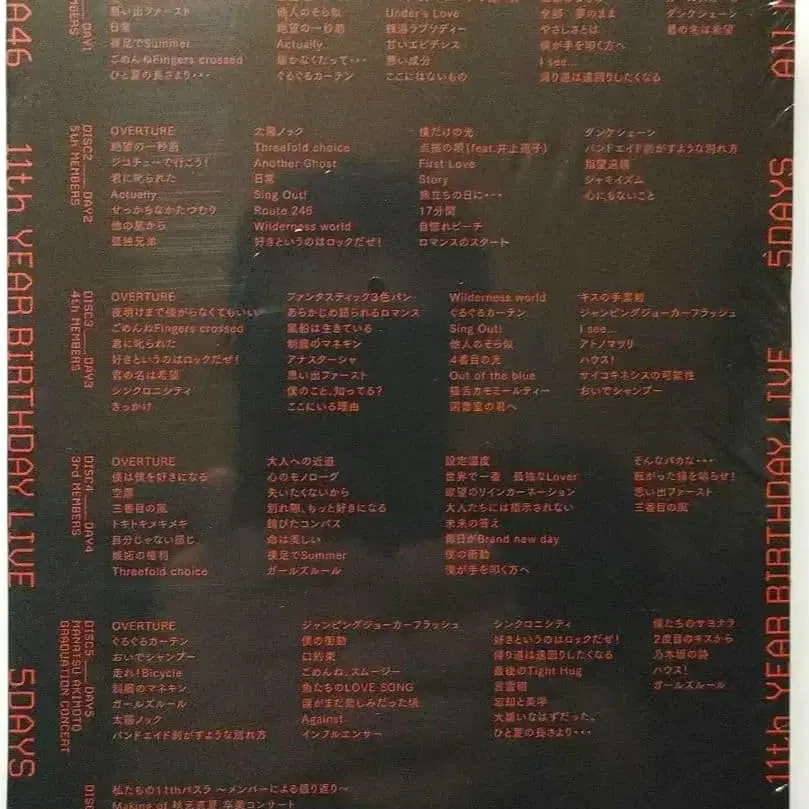 A46 11th YEAR BIRTHDAY LIVE 5DAYS
DAY1
MEMBERS
思い出ファースト
日常
裸足でSummer
ごめんねFingers crossed
ひと夏の長さより・・・
他人のそら似
絶望の一秒前
Actually...
届かなくたって・・・
ぐるぐるカーテン
Under's Love
錆びたコンパス
甘いエビデンス
悪い成分
ここにはないもの
夢のまま
やさしさとは
僕が手を叩く方へ
I see...
帰り道は遠回りしたくなる
ダンケシェーン
君の名は希望
DISC2 DAY2
5th MEMBERS
OVERTURE
絶望の一秒前
ジコチューで行こう!
君に叱られた
Actually...
せっかちなかたつむり
他の星から
孤独兄弟
太陽ノック
Threefold choice
Another Ghost
日常
Sing Out!
Route 246
Wilderness world
好きというのはロックだぜ!
僕だけの光
点描の唄(feat.井上苑子)
First Love
Story
旅立ちの日に・・・
17分間
自惚れビーチ
ロマンスのスタート
ダンケシェーン
バンドエイド剥がすような別れ方
指望遠鏡
シャキイズム
心にもないこと
DISC3 DAY3
4th MEMBERS
OVERTURE
夜明けまで強がらなくてもいい
ごめんねFingers crossed
君に叱られた
好きというのはロックだぜ!
君の名は希望
シンクロニシティ
きっかけ
ファンタスティック3色パン
あらかじめ語られるロマンス
風船は生きている
制服のマネキン
アナスターシャ
思い出ファースト
僕のこと、知ってる?
ここにいる理由
Wilderness world
ぐるぐるカーテン
Sing Out!
他人のそら似
4番目の光
Out of the blue
猫舌カモミールティー
図書室の君へ
キスの手裏剣
ジャンピングジョーカーフラッシュ
I see...
アトノマツリ
ハウス!
サイコキネシスの可能性
おいでシャンプー
DISC4 DAY4
3rd MEMBERS
OVERTURE
僕は僕を好きになる
空扉
三番目の風
トキトキメキメキ
自分じゃない感じ
嫉妬の権利
Threefold choice
大人への近道
心のモノローグ
失いたくないから
別れ際、もっと好きになる
錆びたコンパス
命は美しい
裸足でSummer
ガールズルール
設定温度
世界で一番 孤独なLover
欲望のリインカーネーション
大人たちには指示されない
未来の答え
毎日がBrand new day
僕の衝動
僕が手を叩く方へ
そんなバカな・・・
転がった鐘を鳴らせ!
思い出ファースト
三番目の風
DISC5 DAY5
MANATSU AKIMOTO
GRADUATION CONCERT
OVERTURE
ぐるぐるカーテン
おいでシャンプー
走れ!Bicycle
制服のマネキン
ガールズルール
太陽ノック
バンドエイド剥がすような別れ方
ジャンピングジョーカーフラッシュ
僕の衝動
口約束
ごめんね、スムージー
魚たちのLOVE SONG
僕がまだ悲しみだった頃
Against
インフルエンサー
シンクロニシティ
好きというのはロックだぜ!
帰り道は遠回りしたくなる
最後のTight Hug
言霊砲
忘却と美学
大嫌いなはずだった。
ひと夏の長さより・・・
僕たちのサヨナラ
2度目のキスから
乃木坂の詩
ハウス!
ガールズルール
DISC
私たちの11thバスラ ～メンバーによる振り返り～
Making of 秋元真夏 卒業コンサート
AN 5DAYS 11th YEAR BIRTHDAY LIVE